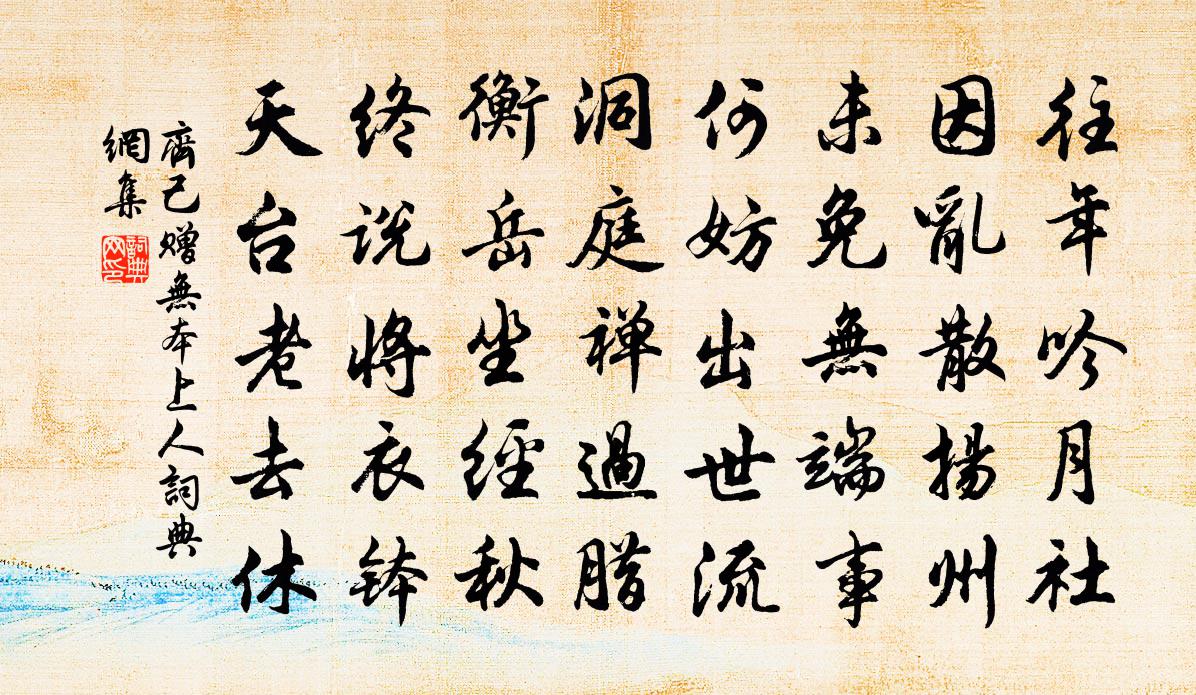 往年吟月社
因亂散揚州
未免無端事
何妨出世流
洞庭禅過腊
衡岳坐經秋
终说将衣钵
天台老去休
齊己赠無本上人詞典
網集
詞典
网印